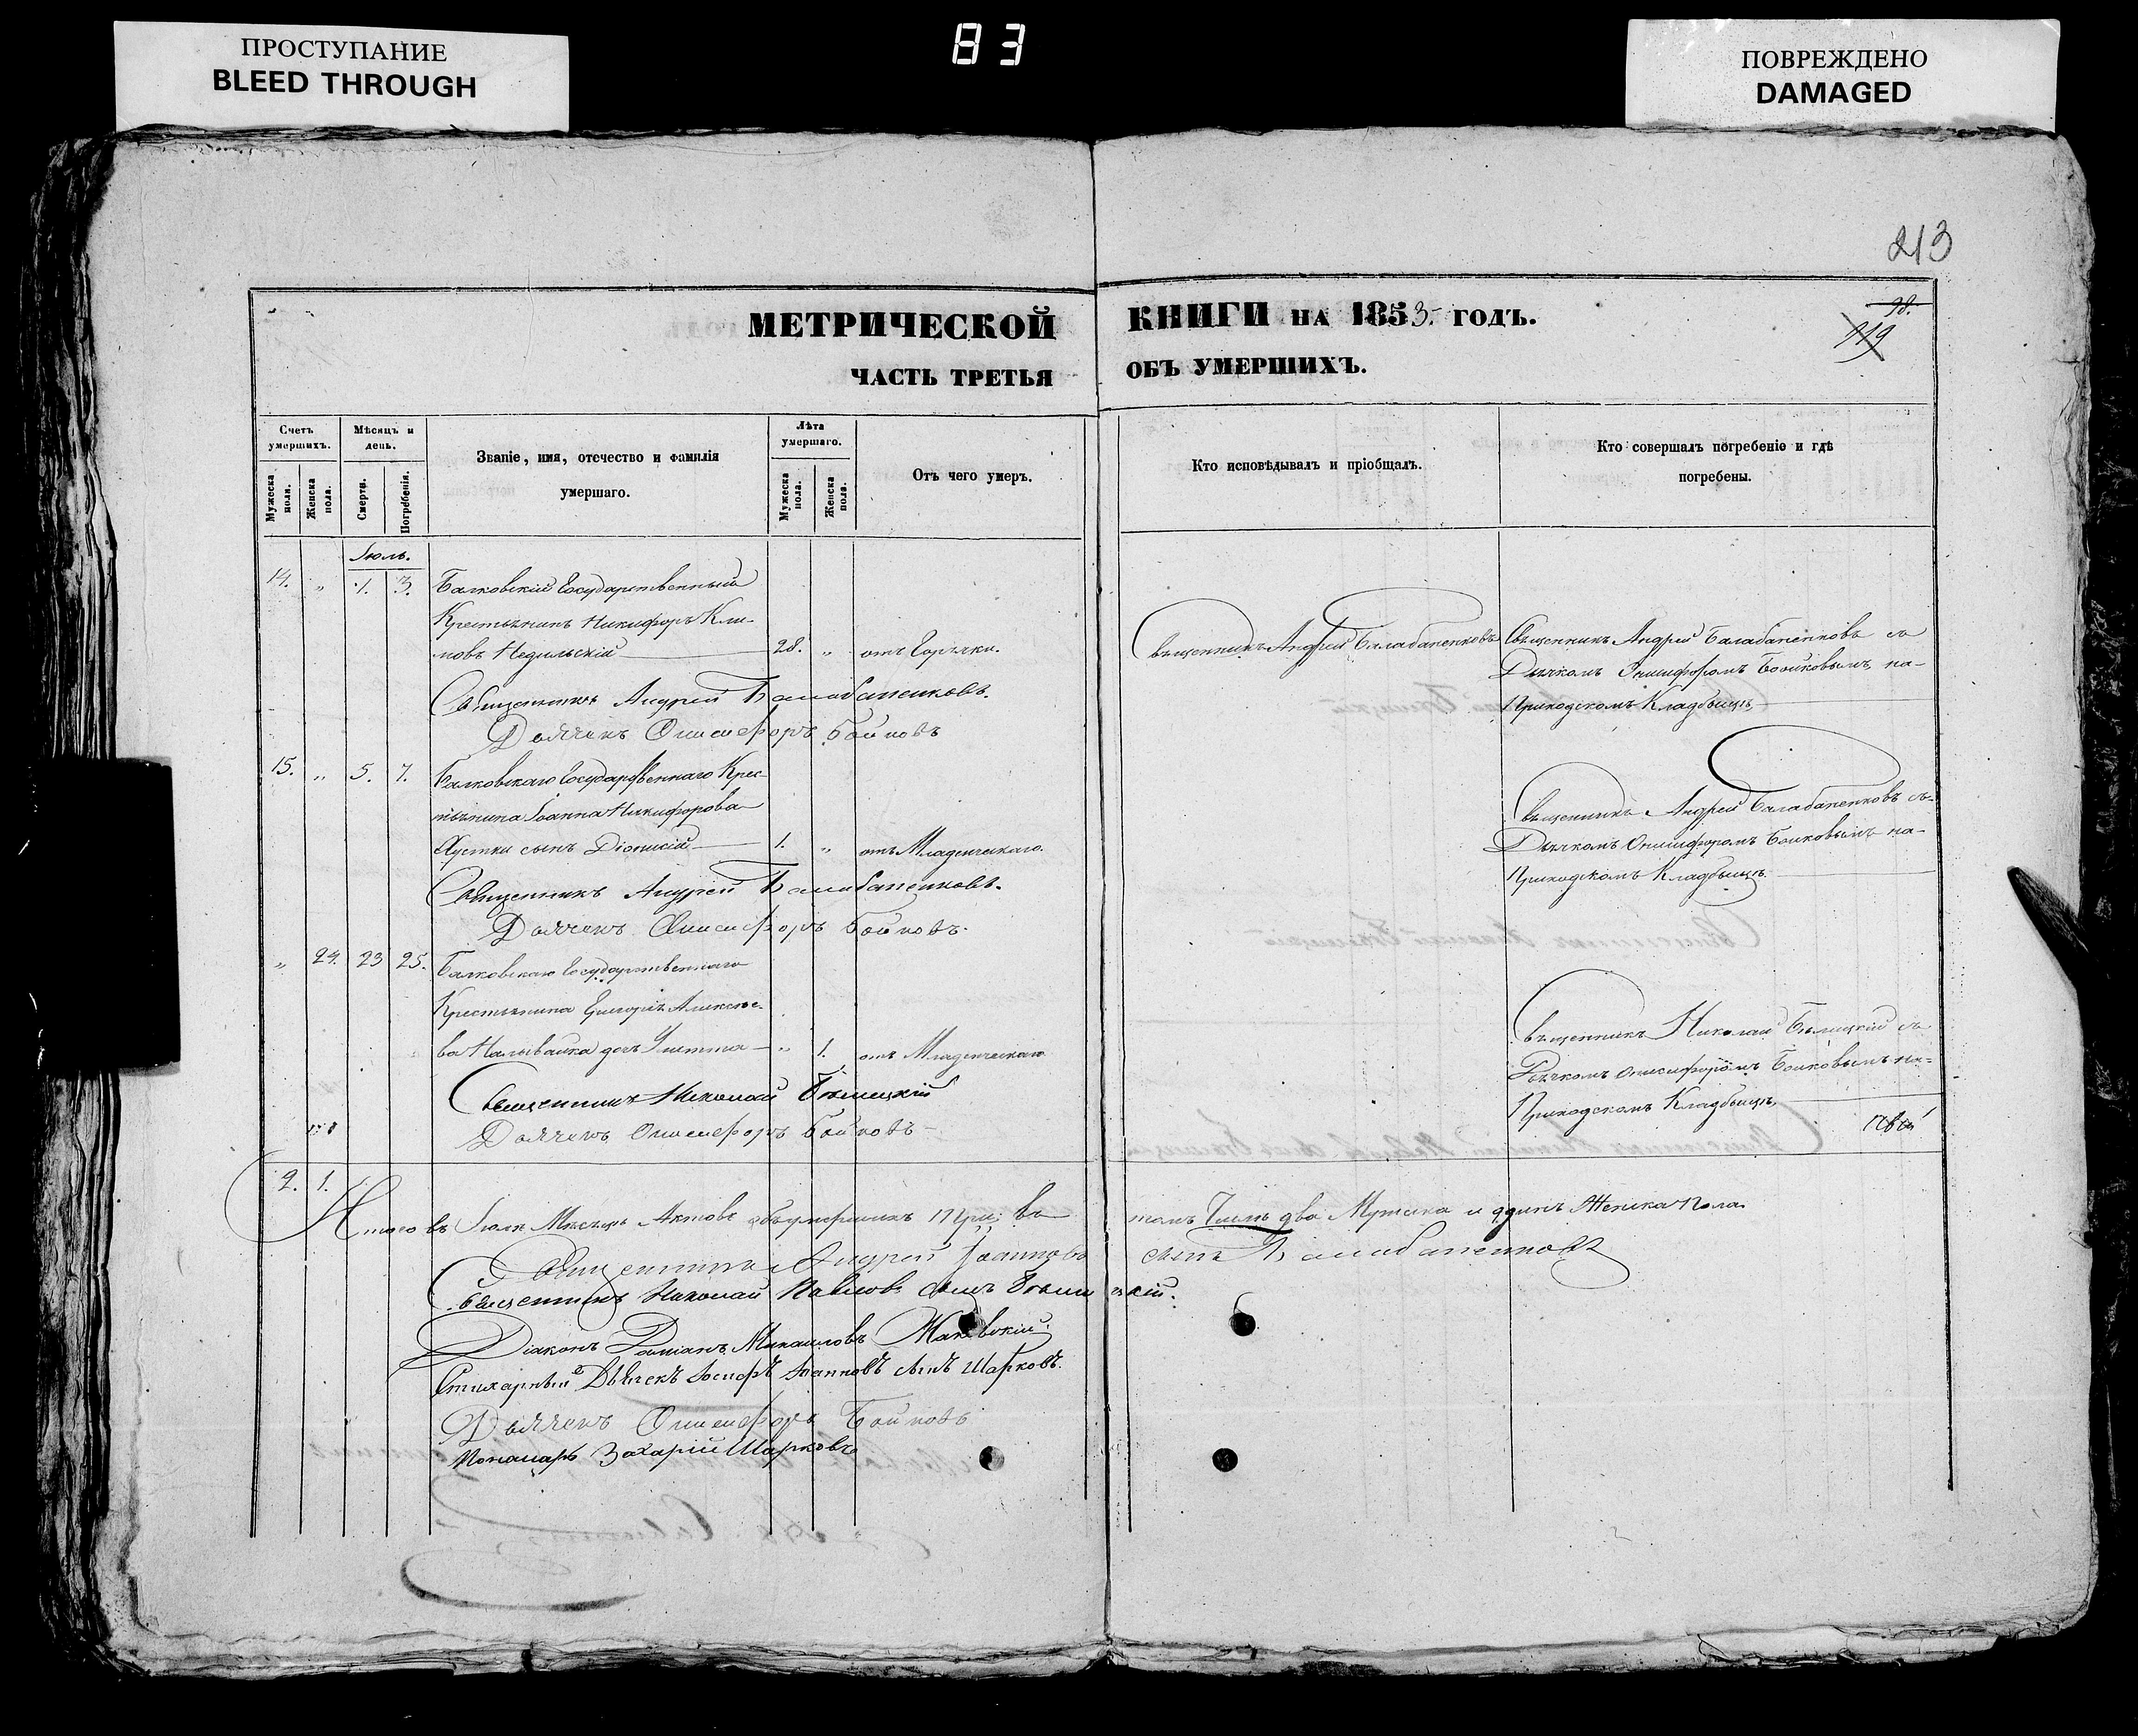 ПРОСТУПАНИЕ
BLEED THROUGH
83
ПОВРЕЖДЕНО
DAMAGED
213
98.
119
МЕТРИЧЕСКОЙ КНИГИ НА 1853. ГОДЪ.
ЧАСТЬ ТРЕТЬЯ ОБЪ УМЕРШИХЪ.
Счетъ умершихъ.
Мужеска пола.
Женска пола.
Мѣсяцъ и день.
Смерти.
Погребенія.
Званіе, имя, отечество и фамилія
умершаго.
Лѣта умершаго.
Мужеска пола.
Женска пола.
Отъ чего умеръ.
Кто исповѣдывалъ и пріобщалъ.
Кто совершалъ погребеніе и гдѣ
погребены.
Іюль.
14. „ 1. 3. Балковскій Государственный
Крестьянинъ Никифоръ Кли-
мовъ Недильскій 28. „ отъ Горячки.
Священникъ Андрей Балабаненковъ
Священникъ Андрей Балабаненковъ съ
Дьячкомъ Онисифоромъ Бойковымъ на-
Приходскомъ Кладбищѣ
Священникъ Андрей Балабаненковъ.
Дьячекъ Онисифоръ Бойковъ
15. „ 5. 7. Балковскаго Государственнаго Крес-
тьянина Іоанна Никифорова
Хустки сынъ Діонисій 1. „ отъ Младенческаго.
Священникъ Андрей Балабаненковъ съ
Дьячкомъ Онисифоромъ Бойковымъ на-
Приходскомъ Кладбищѣ.
Священникъ Андрей Балабаненковъ.
Дьячекъ Онисифоръ Бойковъ.
„ 24. 23 25. Балковскаго Государственнаго
Крестьянина Григорія Алексѣе-
ва Наливайка дочь Улитта „ 1. отъ Младенческаго
Священникъ Николай Бѣлицкій съ
Дьячкомъ Онисифоромъ Бойковымъ на-
Приходскомъ Кладбищѣ.
Священникъ Николай Бѣлицкій
Дьячекъ Онисифоръ Бойковъ
2. 1.
Итого въ Іюлѣ Мѣсяцѣ Актовъ объ умершихъ три; въ томъ Числѣ два Мужска и одинъ Женска Пола.
Священникъ Андрей Іоанновъ сынъ Балабаненковъ
Священникъ Николай Павловъ сынъ Бѣлицкій.
Діаконъ Даміанъ Михаиловъ Маковскій.
Стихарный Дьячекъ Іосифъ Іоанновъ сынъ Шарковъ.
Дьячекъ Онисифоръ Бойковъ
Пономарь Захарій Шарковъ